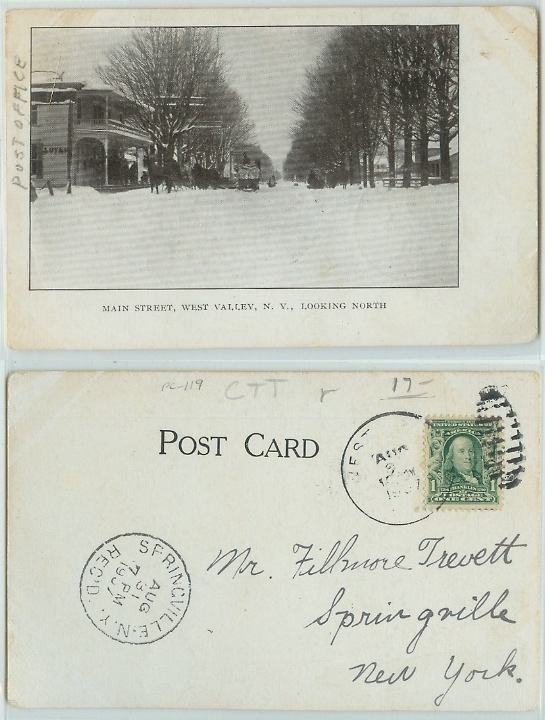 POST OFFICE
MAIN STREET, WEST VALLEY, N. Y., LOOKING NORTH
PC-119
CTT r
17-
POST CARD
WEST
AUG
1907
UNITED STATES OF AMERICA
FRANKLIN
POSTAGE
1 ONE CENT 1
SPRINGVILLE. N.Y.
AUG
31
7 PM
1907
REC'D.
Mr. Fillmore Trevett
Springville
New York.